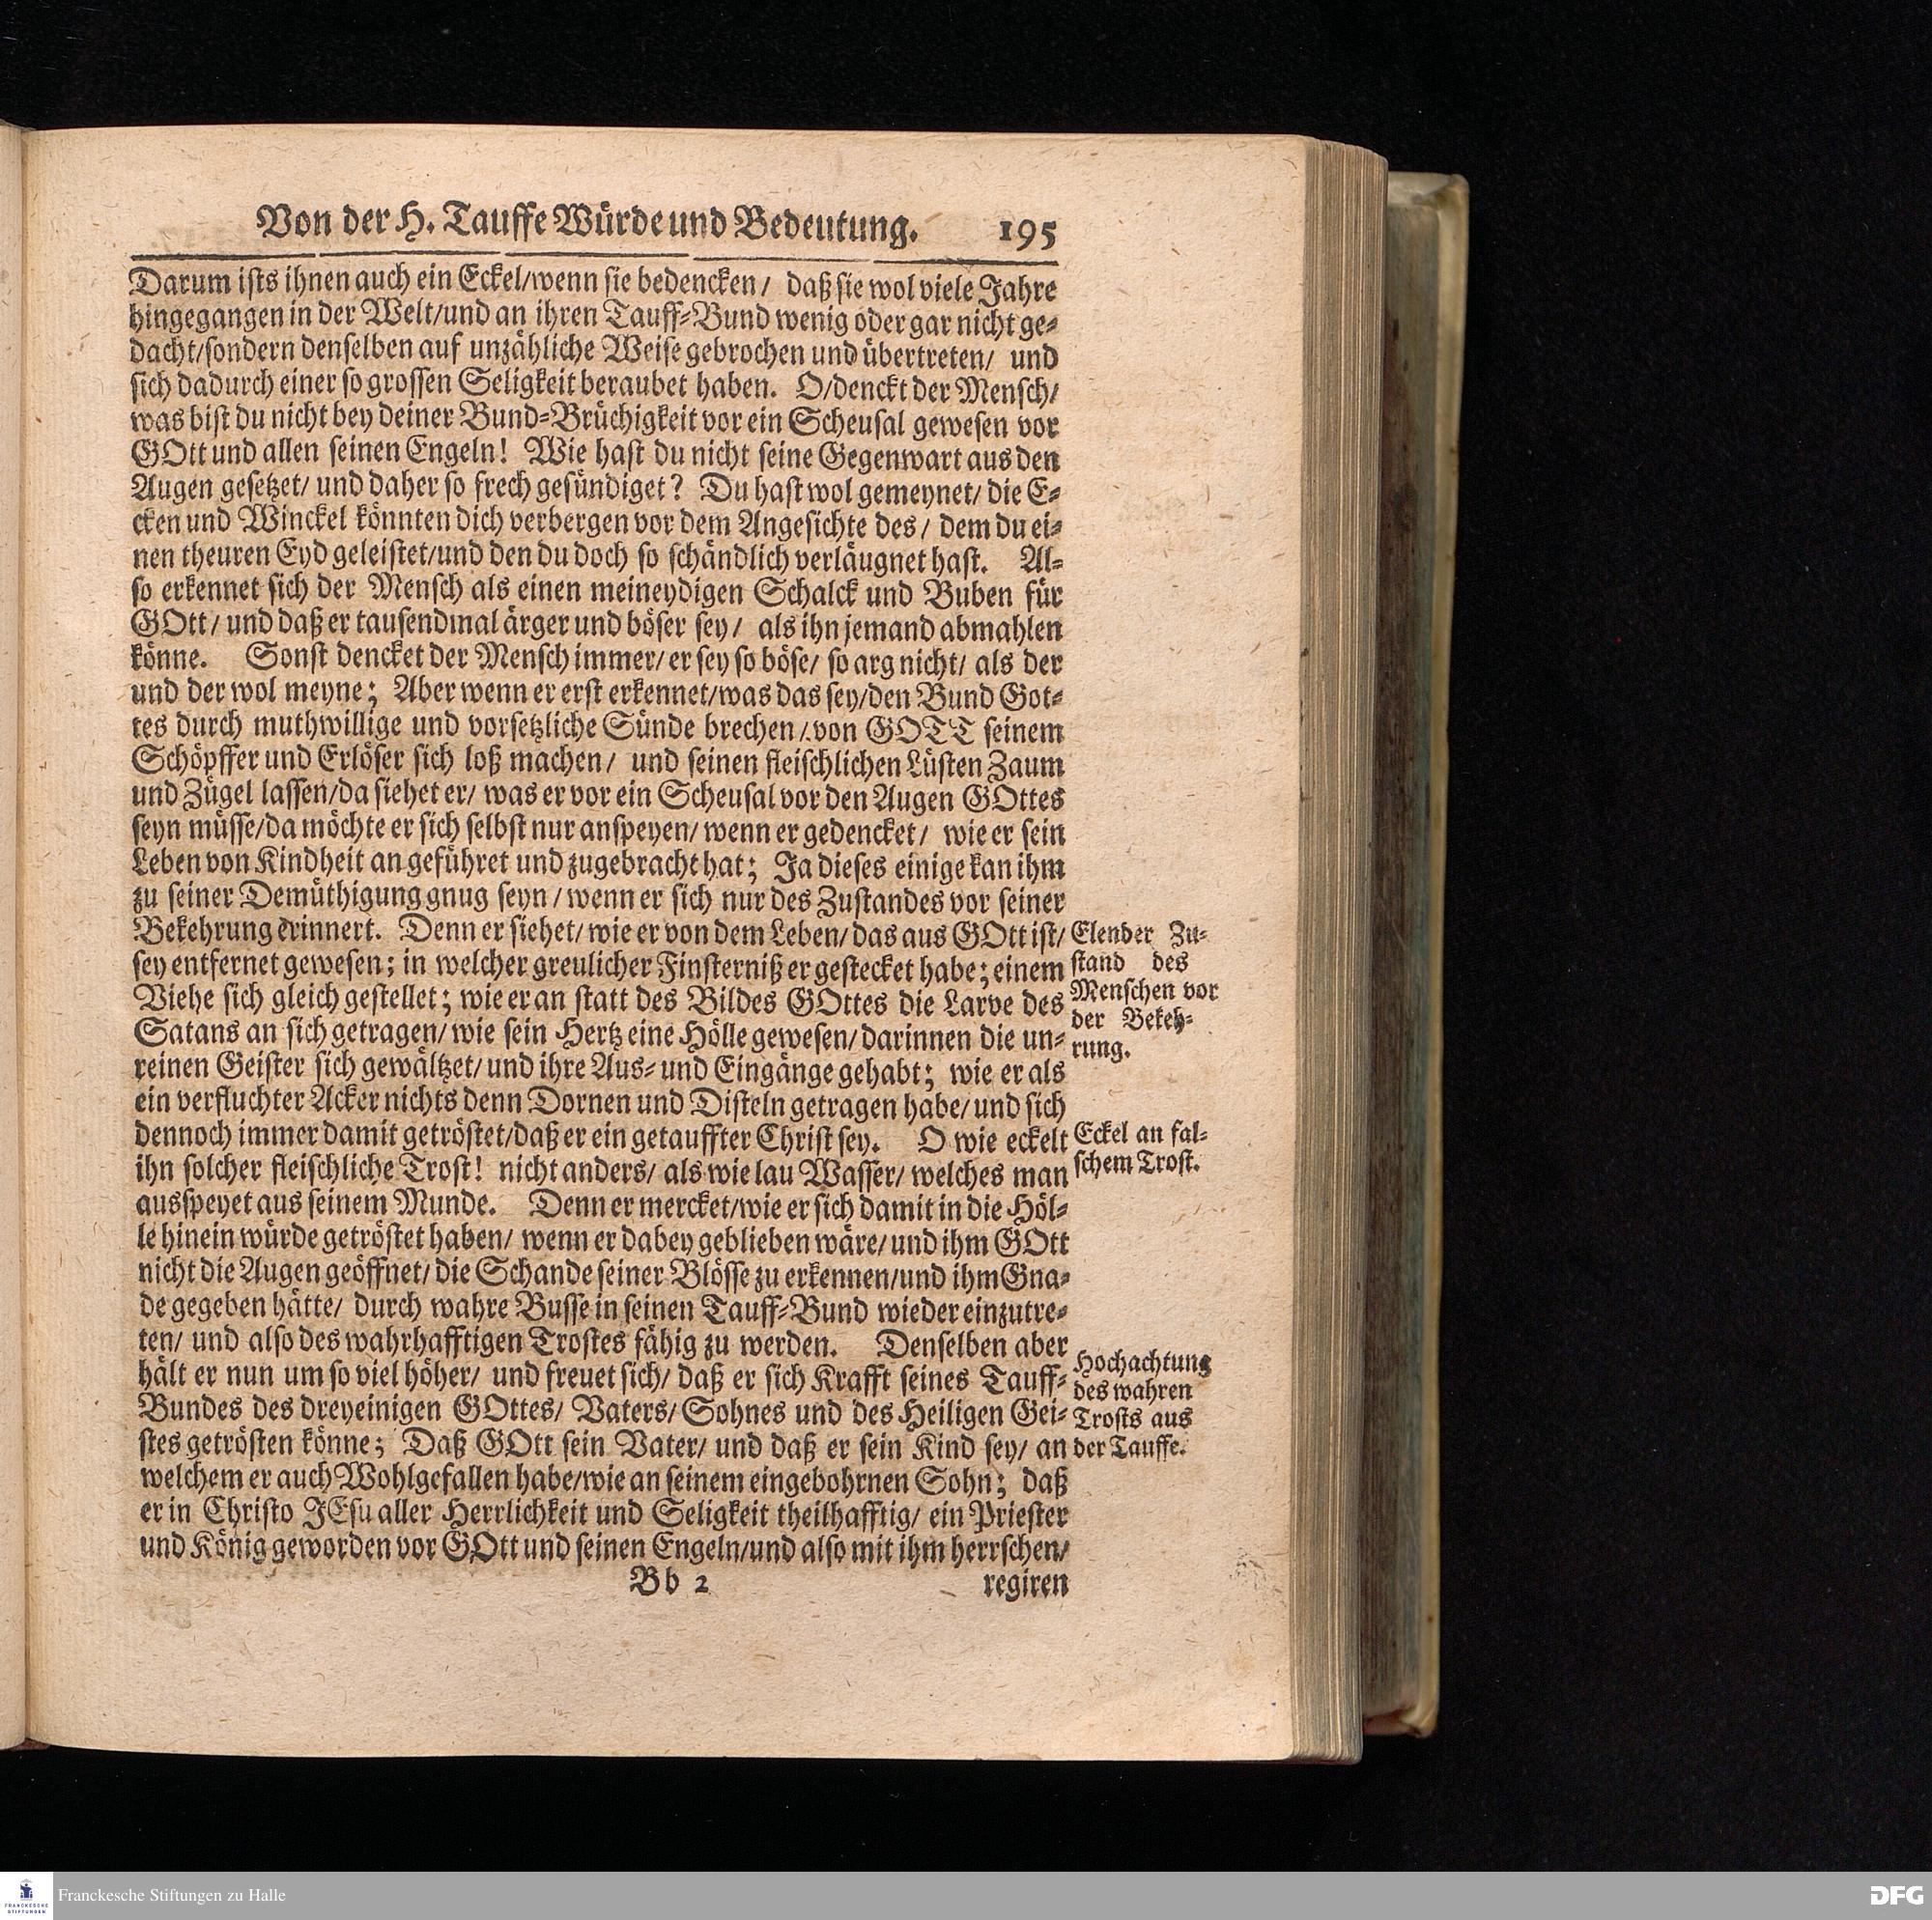 Von der H. Tauffe Würde und Bedeutung. 195
Darum ists ihnen auch ein Eckel/wenn sie bedencken/ daß sie wol viele Jahre
hingegangen in der Welt/und an ihren Tauff-Bund wenig oder gar nicht ge-
dacht/sondern denselben auf unzähliche Weise gebrochen und übertreten/ und
sich dadurch einer so grossen Seligkeit beraubet haben. O/denckt der Mensch/
was bist du nicht bey deiner Bund-Brüchigkeit vor ein Scheusal gewesen vor
GOtt und allen seinen Engeln! Wie hast du nicht seine Gegenwart aus den
Augen gesetzet/ und daher so frech gesündiget? Du hast wol gemeynet/ die E-
cken und Winckel könnten dich verbergen vor dem Angesichte des/ dem du ei-
nen theuren Eyd geleistet/und den du doch so schändlich verläugnet hast. Al-
so erkennet sich der Mensch als einen meineydigen Schalck und Buben für
GOtt/ und daß er tausendmal ärger und böser sey/ als ihn jemand abmahlen
könne. Sonst dencket der Mensch immer/ er sey so böse/ so arg nicht/ als der
und der wol meyne; Aber wenn er erst erkennet/was das sey/den Bund Got-
tes durch muthwillige und vorsetzliche Sünde brechen/.von GOTT seinem
Schöpffer und Erlöser sich loß machen/ und seinen fleischlichen Lüsten Zaum
und Zügel lassen/da siehet er/ was er vor ein Scheusal vor den Augen GOttes
seyn müsse/da möchte er sich selbst nur anspeyen/ wenn er gedencket/ wie er sein
Leben von Kindheit an geführet und zugebracht hat; Ja dieses einige kan ihm
zu seiner Demüthigung gnug seyn/ wenn er sich nur des Zustandes vor seiner
Bekehrung erinnert. Denn er siehet/ wie er von dem Leben/ das aus GOtt ist/
sey entfernet gewesen; in welcher greulicher Finsterniß er gestecket habe; einem
Viehe sich gleich gestellet; wie er an statt des Bildes GOttes die Larve des
Satans an sich getragen/ wie sein Hertz eine Hölle gewesen/ darinnen die un-
reinen Geister sich gewältzet/ und ihre Aus- und Eingänge gehabt; wie er als
ein verfluchter Acker nichts denn Dornen und Disteln getragen habe/ und sich
dennoch immer damit getröstet/daß er ein getauffter Christ sey. O wie eckelt
ihn solcher fleischliche Trost! nicht anders/ als wie lau Wasser/ welches man
ausspeyet aus seinem Munde. Denn er mercket/wie er sich damit in die Höl-
le hinein würde getröstet haben/ wenn er dabey geblieben wäre/ und ihm GOtt
nicht die Augen geöffnet/ die Schande seiner Blösse zu erkennen/und ihm Gna-
de gegeben hätte/ durch wahre Busse in seinen Tauff-Bund wieder einzutre-
ten/ und also des wahrhafftigen Trostes fähig zu werden. Denselben aber
hält er nun um so viel höher/ und freuet sich/ daß er sich Krafft seines Tauff-
Bundes des dreyeinigen GOttes/ Vaters/ Sohnes und des Heiligen Gei-
stes getrösten könne; Daß GOtt sein Vater/ und daß er sein Kind sey/ an
welchem er auch Wohlgefallen habe/wie an seinem eingebohrnen Sohn; daß
er in Christo JEsu aller Herrlichkeit und Seligkeit theilhafftig/ ein Priester
und König geworden vor GOtt und seinen Engeln/und also mit ihm herrschen/
Bb 2 regiren
Elender Zu-
stand des
Menschen vor
der Bekeh-
rung.
Eckel an fal-
schem Trost.
Hochachtung
des wahren
Trosts aus
der Tauffe.
FRANCKESCHE
STIFTUNGEN
Franckesche Stiftungen zu Halle
DFG